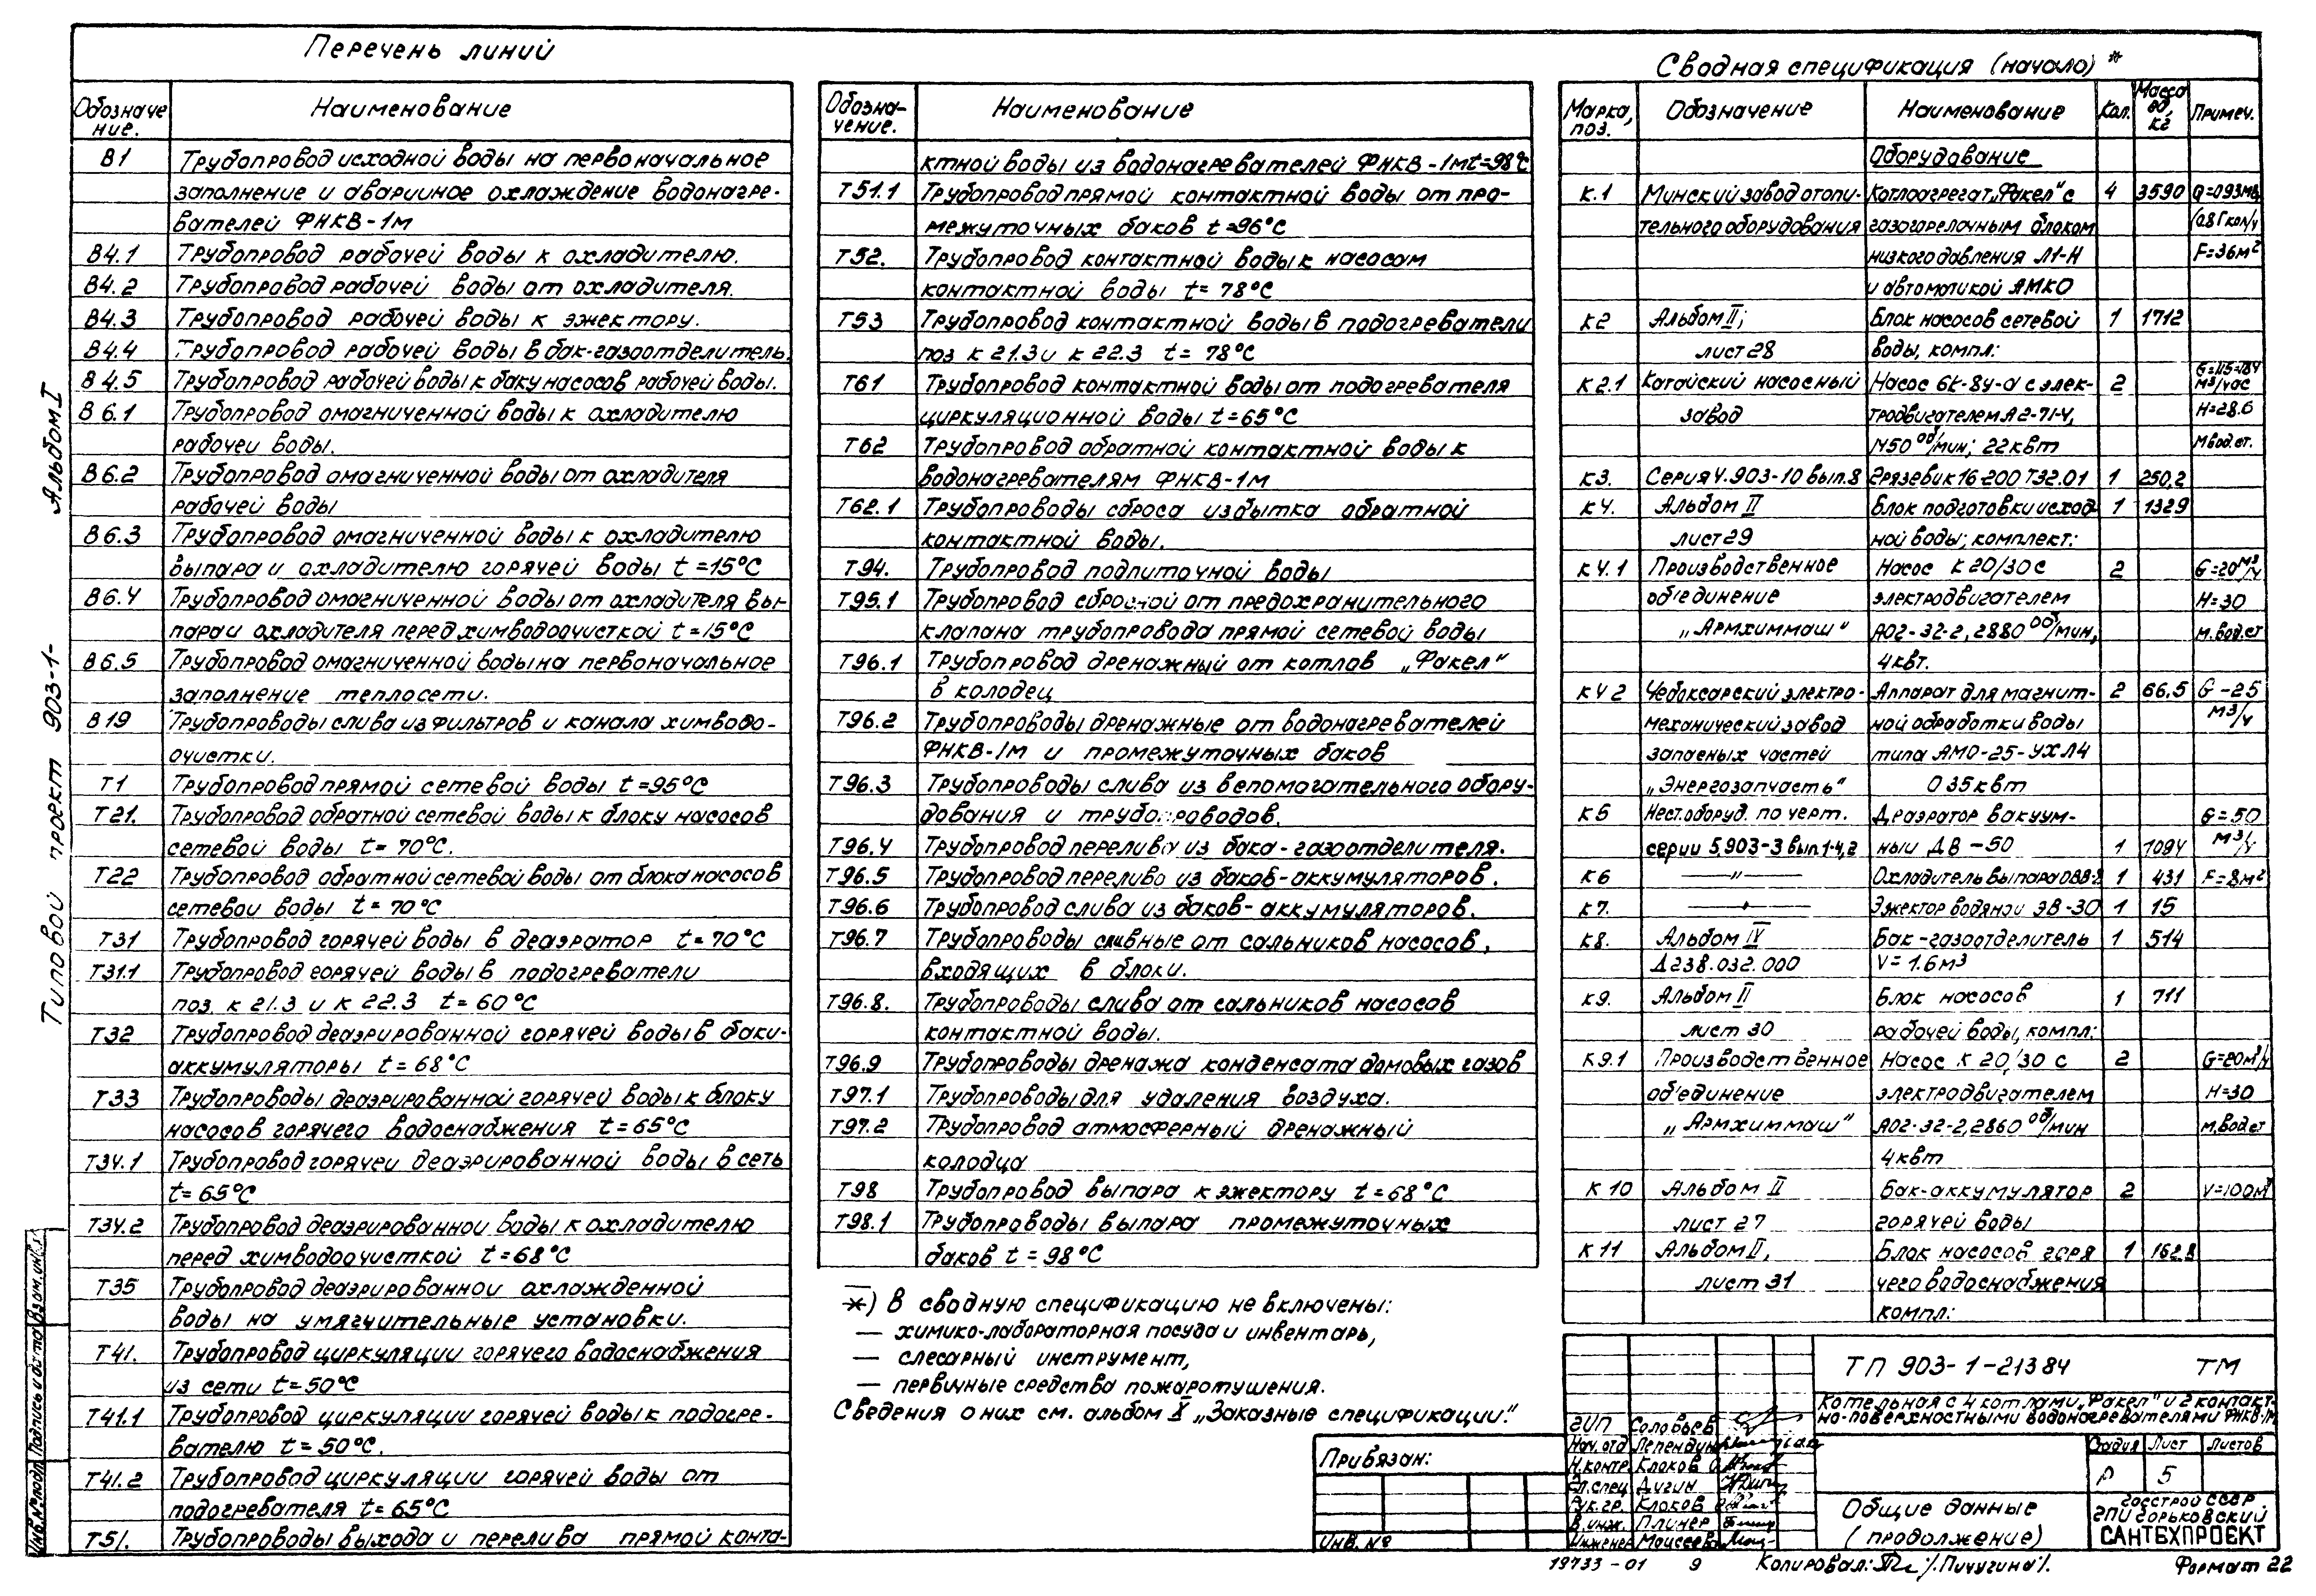 Перечень линий
Обозначе
ние.
Наименование
В1 Трубопровод исходной воды на первоначальное
заполнение и аварийное охлаждение водонагре-
вателей ФНКВ-1м
В4.1 Трубопровод рабочей воды к охладителю.
В4.2 Трубопровод рабочей воды от охладителя.
В4.3 Трубопровод рабочей воды к эжектору.
В4.4 Трубопровод рабочей воды в бак-газоотделитель.
В4.5 Трубопровод рабочей воды к баку насосов рабочей воды.
В6.1 Трубопровод омагниченной воды к охладителю
рабочей воды.
В6.2 Трубопровод омагниченной воды от охладителя
рабочей воды
В6.3 Трубопровод омагниченной воды к охладителю
выпара и охладителю горячей воды t=15°С
В6.4 Трубопровод омагниченной воды от охладителя вы-
пара и охладителя перед химводоочисткой t=15°С
В6.5 Трубопровод омагниченной воды на первоначальное
заполнение теплосети.
В19 Трубопроводы слива из фильтров и канала химводо-
очистки.
Т1 Трубопровод прямой сетевой воды t=95°С
Т21. Трубопровод обратной сетевой воды к блоку насосов
сетевой воды t=70°С.
Т22 Трубопровод обратной сетевой воды от блока насосов
сетевой воды t=70°С
Т31 Трубопровод горячей воды в деаэратор t=70°С
Т31.1 Трубопровод горячей воды в подогреватели
поз. к 21.3 и к 22.3 t=60°С
Т32 Трубопровод деаэрированной горячей воды в баки-
аккумуляторы t=68°С
Т33 Трубопроводы деаэрированной горячей воды к блоку
насосов горячего водоснабжения t=65°С
Т34.1 Трубопровод горячей деаэрированной воды в сеть
t=65°С
Т34.2 Трубопровод деаэрированной воды к охладителю
перед химводоочисткой t=68°С
Т35 Трубопровод деаэрированной охлажденной
воды на умягчительные установки.
Т41. Трубопровод циркуляции горячего водоснабжения
из сети t=50°С
Т41.1 Трубопровод циркуляции горячей воды к подогре-
вателю t=50°С.
Т41.2 Трубопровод циркуляции горячей воды от
подогревателя t=65°С
Т51. Трубопроводы выхода и перелива прямой конта-
Обозна-
чение.
Наименование
ктной воды из водонагревателей ФНКВ-1м t=98°С
Т51.1 Трубопровод прямой контактной воды от про-
межуточных баков t=96°С
Т52. Трубопровод контактной воды к насосам
контактной воды t=78°С
Т53 Трубопровод контактной воды в подогреватели
поз к 21.3 и к 22.3 t=78°С
Т61 Трубопровод контактной воды от подогревателя
циркуляционной воды t=65°С
Т62 Трубопровод обратной контактной воды к
водонагревателям ФНКВ-1м
Т62.1 Трубопроводы сброса избытка обратной
контактной воды.
Т94. Трубопровод подпиточной воды
Т95.1 Трубопровод сбросной от предохранительного
клапана трубопровода прямой сетевой воды
Т96.1 Трубопровод дренажный от котлов „Факел"
в колодец
Т96.2 Трубопроводы дренажные от водонагревателей
ФНКВ-1м и промежуточных баков
Т96.3 Трубопроводы слива из вспомогательного обору-
дования и трубопроводов.
Т96.4 Трубопровод перелива из бака-газоотделителя.
Т96.5 Трубопровод перелива из баков-аккумуляторов.
Т96.6 Трубопровод слива из баков-аккумуляторов.
Т96.7 Трубопроводы сливные от сальников насосов,
входящих в блоки.
Т96.8. Трубопроводы слива от сальников насосов
контактной воды.
Т96.9 Трубопроводы дренажа конденсата дымовых газов
Т97.1 Трубопроводы для удаления воздуха.
Т97.2 Трубопровод атмосферный дренажный
колодца
Т98 Трубопровод выпара к эжектору t=68°С
Т98.1 Трубопроводы выпара промежуточных
баков t=98°С
*) В сводную спецификацию не включены:
— химико-лабораторная посуда и инвентарь,
— слесарный инструмент,
— первичные средства пожаротушения.
Сведения о них см. альбом X „Заказные спецификации."
Сводная спецификация (начало) *
Марка,
поз.
Обозначение
Наименование
Кол.
Масса
ед,
кг
Примеч.
Оборудование
К.1 Минский завод отопи- Котлоагрегат „Факел" с 4 3590 Q=0.93мв
тельного оборудования газогорелочным блоком (0.8 Гкал/ч
низкого давления Л1-Н F=36м²
и автоматикой АМКО
К2 Альбом II; Блок насосов сетевой 1 1712
лист 28 воды, компл:
К2.1 Катайский насосный Насос 6К-8у-а с элек- 2 м³/час
завод тродвигателем А2-71-4, Н=28.6
1450 об/мин; 22квт м вод.ст.
К3. Серия 4.903-10 вып.8 Грязевик 16-200 Т32.01 1 250,2
К4. Альбом II Блок подготовки исход- 1 1329
лист 29 ной воды; комплект:
К4.1 Производственное Насос К 20/30 с 2 G=20м³/ч
об'единение электродвигателем Н=30
„Армхиммаш" АО2-32-2, 2880 об/мин, м.вод.ст
4квт.
К4 2 Чебоксарский электро- Аппарат для магнит- 2 66.5 G-25
механический завод ной обработки воды м³/ч
запасных частей типа АМО-25-УХЛ4
„Энергозапчасть" 0 35 квт
К5 Нест.оборуд. по черт. Деаэратор вакуум- G=50
серии 5.903-3 вып.1-4,2 ный ДВ-50 1 1094 м³/ч
К6 —"— Охладитель выпара ОВВ-8 1 431 F=8м²
К7. —"— Эжектор водяной ЭВ-30 1 15
К8. Альбом IV Бак-газоотделитель 1 514
Д238.032.000 V=1.6м³
К9. Альбом II Блок насосов 1 711
лист 30 рабочей воды, компл:
К9.1 Производственное Насос К 20/30 с 2 G=20м³/ч
об'единение электродвигателем Н=30
„Армхиммаш" АО2-32-2, 2860 об/мин м.вод.ст
4квт
К10 Альбом II Бак-аккумулятор 2 V=100м³
лист 27 горячей воды
К11 Альбом II, Блок насосов горя 1 162.8
лист 31 чего водоснабжения
компл:
ТП 903-1-213 84 ТМ
Котельная с 4 котлами „Факел" и 2 контакт-
но-поверхностными водонагревателями ФНКВ-1м
ГИП Соловьев
Нач.отд
Н.контр. Клоков
Гл.спец Дигин
Рук.гр. Клоков
В.инж. Плинер
Инженер Моисеева
Стадия Лист Листов
Р 5
Общие данные
(продолжение)
Госстрой СССР
ГПИ Горьковский
САНТЕХПРОЕКТ
Привязан:
Инв. №
19733-01 9 Копировал: /Пичугина/. Формат 22
Типовой проект 903-1- Альбом I
Инв.№подл. Подпись и дата Взам.инв.№